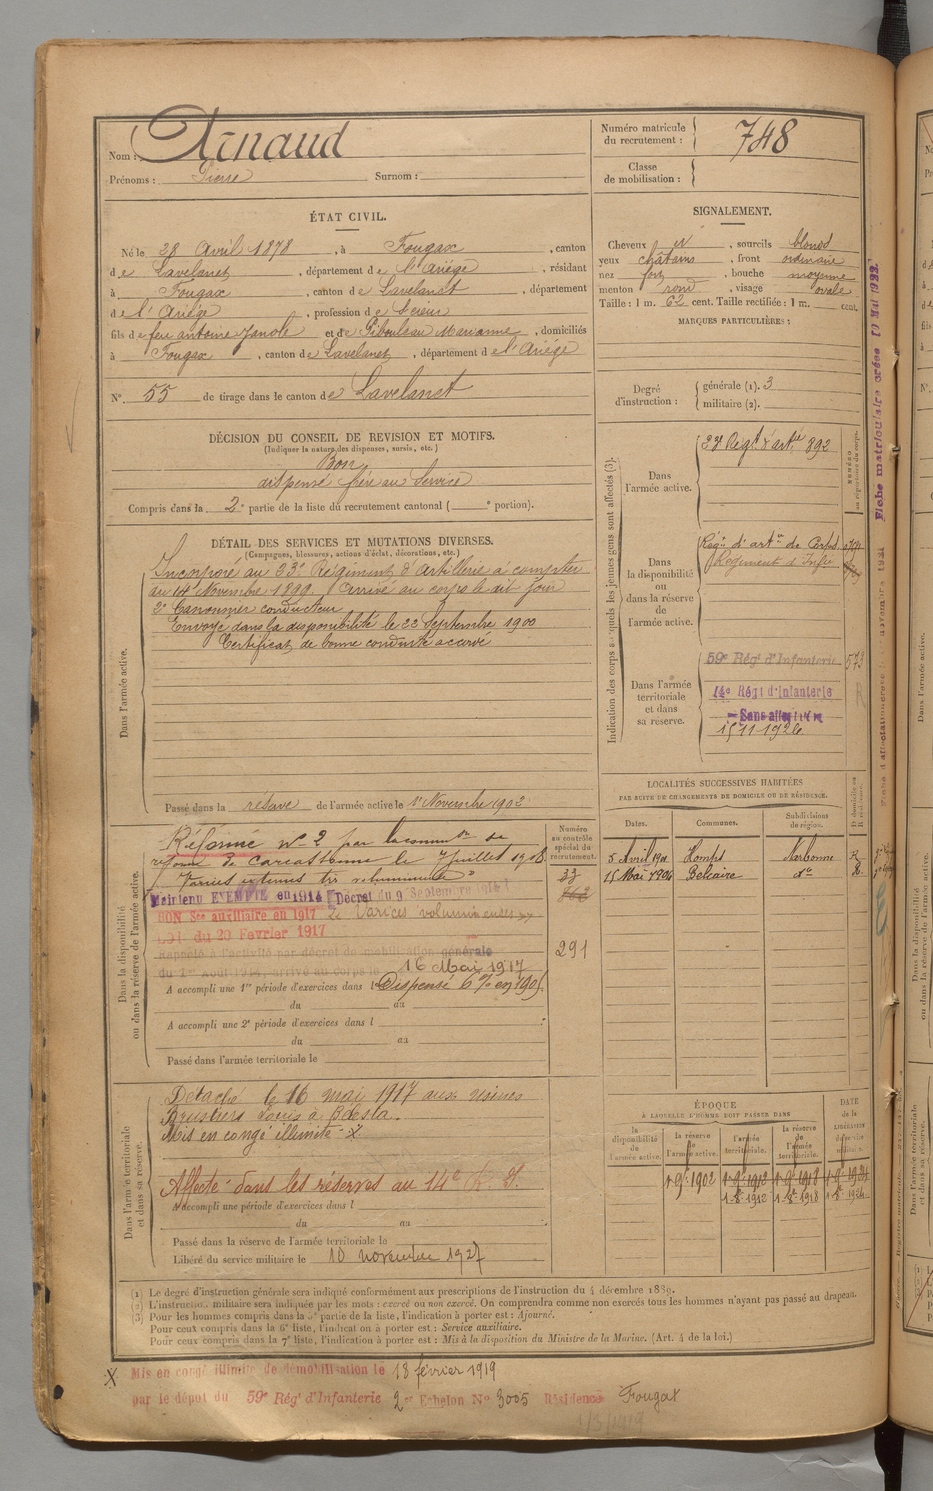 Nom : Arnaud
Prénoms : Pierre Surnom :
Numéro matricule du recrutement : 748
Classe de mobilisation :
ÉTAT CIVIL.
Né le 28 Avril 1878, à Fougax, canton
de Lavelanet, département de l'Ariége, résidant
à Fougax, canton de Lavelanet, département
de l'Ariége, profession de
fils de feu antoine Janole et de Marianne, domiciliés
à Fougax, canton de Lavelanet, département de l'Ariége
N° 55 de tirage dans le canton de Lavelanet
DÉCISION DU CONSEIL DE REVISION ET MOTIFS.
(Indiquer la nature des dispenses, sursis, etc.)
Bon
dispensé frère au Service
Compris dans la 2e partie de la liste du recrutement cantonal ( e portion).
SIGNALEMENT.
Cheveux , sourcils blond
yeux chatains, front ordinaire
nez fort, bouche moyenne
menton rond, visage ovale
Taille : 1 m. 62 cent. Taille rectifiée : 1 m. cent.
MARQUES PARTICULIÈRES :
Degré d'instruction : générale (1). 3
militaire (2).
DÉTAIL DES SERVICES ET MUTATIONS DIVERSES.
(Campagnes, blessures, actions d'éclat, décorations, etc.)
Dans l'armée active.
Incorporé au 23e Régiment d'Artillerie à compter
du 14 Novembre 1899. Arrivé au corps le dit jour
2e Canonnier conducteur
Envoyé dans la disponibilité le 22 Septembre 1900
Certificat de bonne conduite accordé
Passé dans la réserve de l'armée active le 1er Novembre 1902
Indication des corps auxquels les jeunes gens sont affectés (3).
Dans l'armée active.
23e Régt d'artie 892
Dans la disponibilité ou dans la réserve de l'armée active.
Régt d'artie de
Régiment d'Infie
Dans l'armée territoriale et dans sa réserve.
59e Rég' d'Infanterie 573
14e Régt d'Infanterie
Sans affectation
15-11-1926
LOCALITÉS SUCCESSIVES HABITÉES
PAR SUITE DE CHANGEMENTS DE DOMICILE OU DE RÉSIDENCE.
Dates. Communes. Subdivisions de région. D domicile ou R résidence.
5 Avril 1901 Homps Narbonne R
15 Mai 1904 Belcaire do R.
Dans la disponibilité ou dans la réserve de l'armée active.
Numéro au contrôle spécial du recrutement.
Réformé n° 2 par la comm on de
réforme de Carcassonne le 7 juillet 1908
Varices externes très volumineuses 33
Maintenu EXEMPTÉ en 1914 Décret du 9 Septembre 1914
BON Sce auxiliaire en 1917 Varices volumineuses
LOI du 20 Février 1917
Rappelé à l'activité par décret de mobilisation générale 291
du 1er Août 1914, arrivé au corps le 16 Mai 1917
A accompli une 1re période d'exercices dans l Dispensé en 1905
du au
A accompli une 2e période d'exercices dans l
du au
Passé dans l'armée territoriale le
Dans l'armée territoriale et dans sa réserve.
Détaché le 16 mai 1917 aux usines
Brustiers Louis à Bélesta.
Mis en congé illimité X
Affecté dans les réserves au 14e R. I.
A accompli une période d'exercices dans l
du au
Passé dans la réserve de l'armée territoriale le
Libéré du service militaire le 10 novembre 1927
ÉPOQUE
A LAQUELLE L'HOMME DOIT PASSER DANS
DATE de la LIBÉRATION du service militaire.
la disponibilité de l'armée active. la réserve de l'armée active. l'armée territoriale. la réserve de l'armée territoriale.
1er 9bre 1902 1er 9bre 1912 1er 9bre 1918 1er 9bre 1924
(1) Le degré d'instruction générale sera indiqué conformément aux prescriptions de l'instruction du 4 décembre 1889.
(2) L'instruction militaire sera indiquée par les mots : exercé ou non exercé. On comprendra comme non exercés tous les hommes n'ayant pas passé au drapeau.
(3) Pour les hommes compris dans la 5e partie de la liste, l'indication à porter est : Ajourné.
Pour ceux compris dans la 6e liste, l'indication à porter est : Service auxiliaire.
Pour ceux compris dans la 7e liste, l'indication à porter est : Mis à la disposition du Ministre de la Marine. (Art. 4 de la loi.)
X Mis en congé illimité de démobilisation le 18 février 1919
par le dépôt du 59e Rég' d'Infanterie 2e Echelon N° 3005 Résidence Fougax